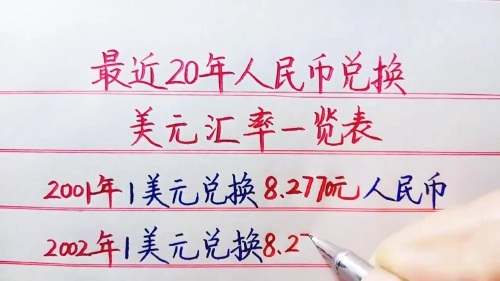 最近20年人民币兑换
美元汇率一览表
2001年1美元兑换8.2770元人民币
2002年1美元兑换8.2